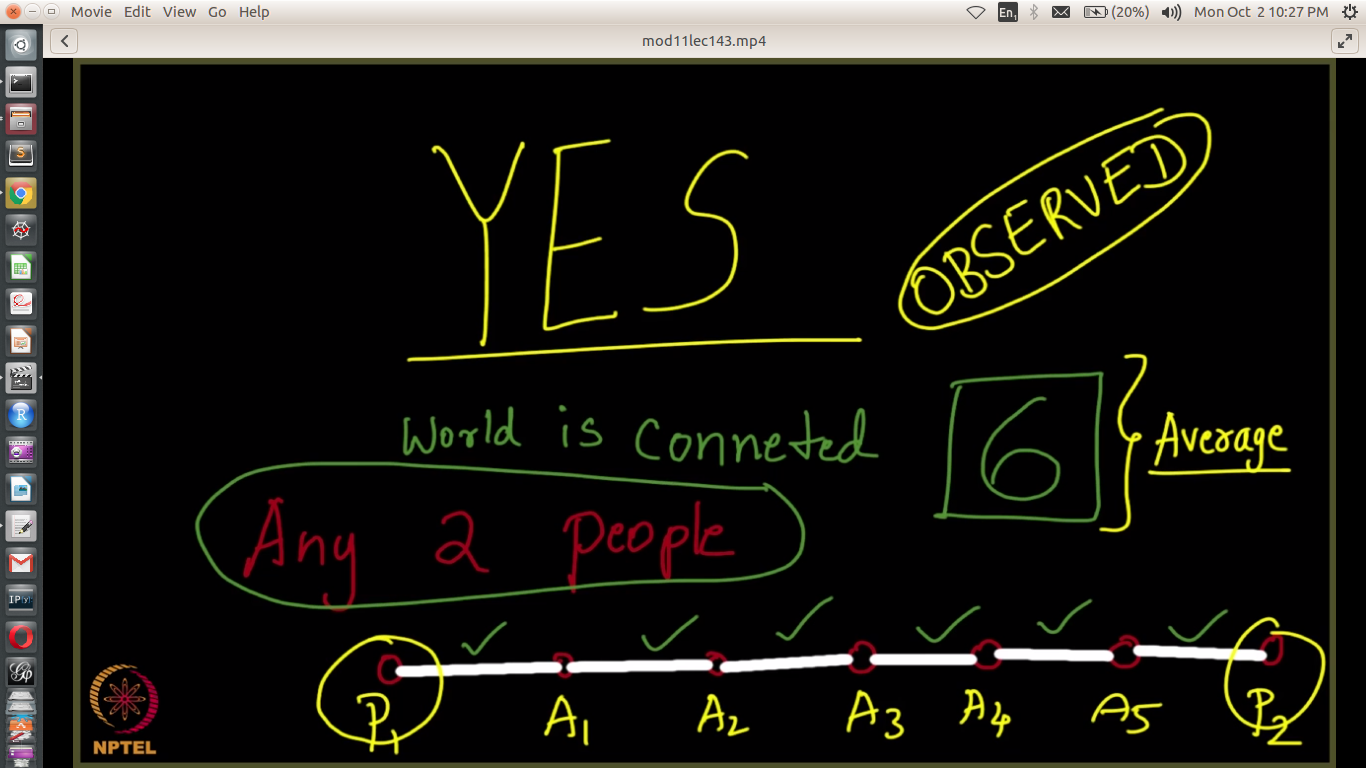 Movie Edit View Go Help
En1 (20%) Mon Oct 2 10:27 PM
mod11lec143.mp4
YES
OBSERVED
World is Conneted
6 Average
Any 2 people
P1 A1 A2 A3 A4 A5 P2
NPTEL
S
R
IP[y]: